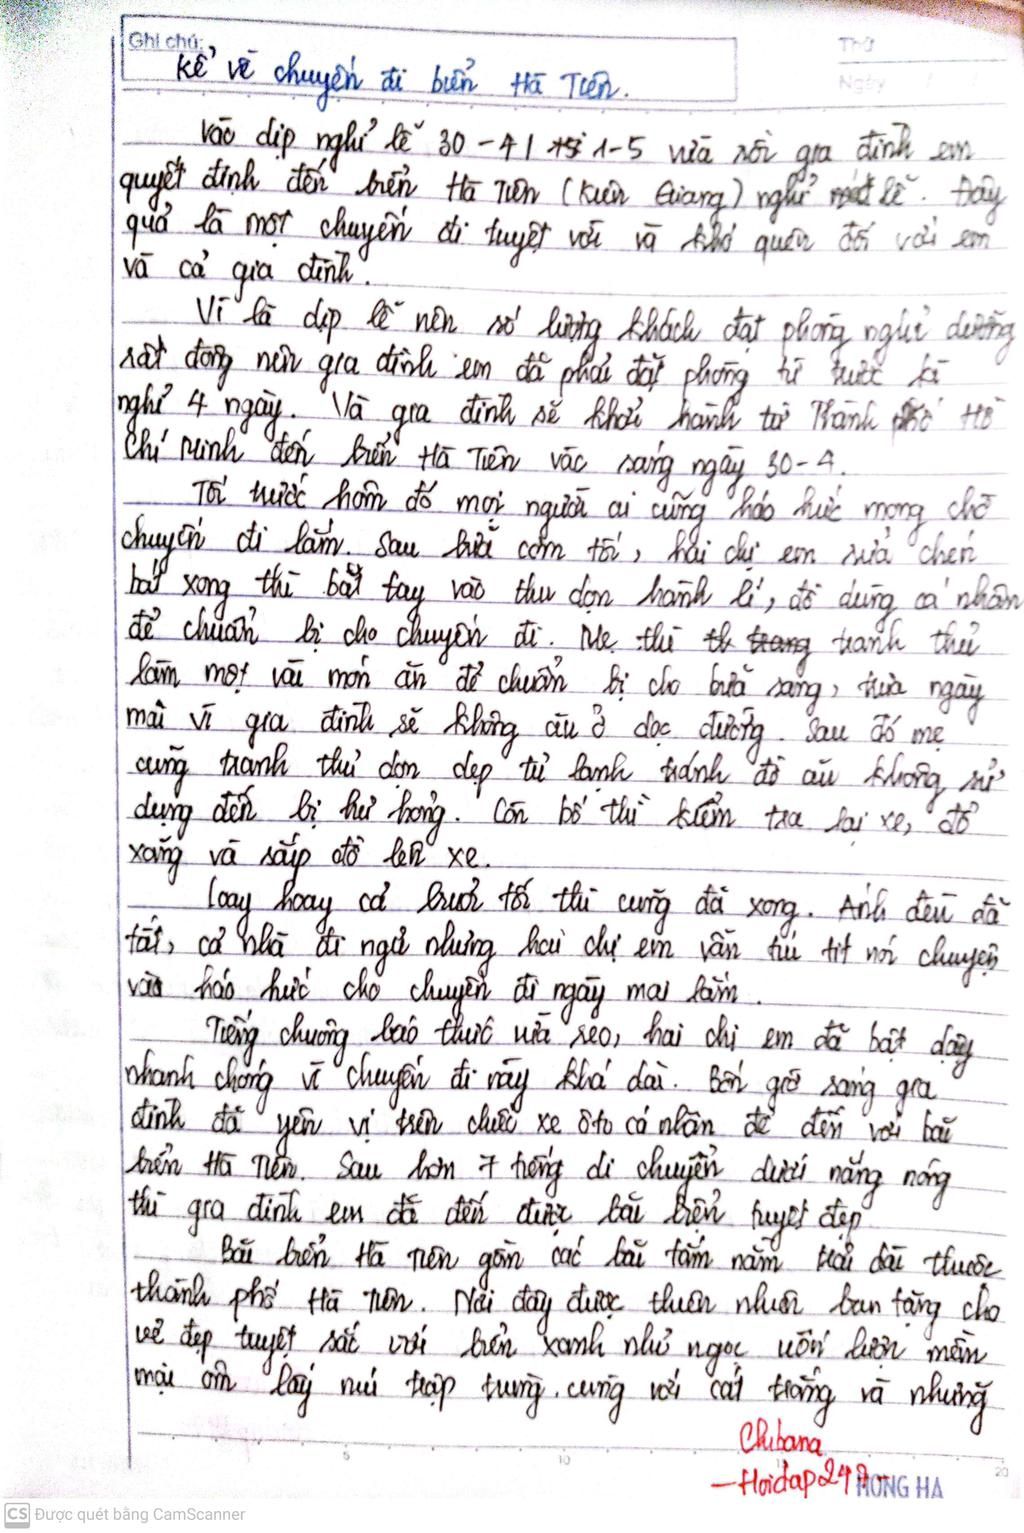 Ghi chú:
Thứ
Kể về chuyến đi biển Hà Tiên.
Ngày
Vào dịp nghỉ lễ 30-4 1-5 vừa rồi gia đình em
quyết định đến biển Hà Tiên (Kiên Giang) nghỉ lễ. Đây
quả là một chuyến đi tuyệt vời và khó quên đối với em
và cả gia đình.
Vì là dịp lễ nên số lượng khách đạt phòng nghỉ dưỡng
rất đông nên gia đình em đã phải đặt phòng từ trước kì
nghỉ 4 ngày. Và gia đình sẽ khởi hành từ Thành phố Hồ
Chí Minh đến biển Hà Tiên vào sáng ngày 30-4.
Tối trước hôm đó mọi người ai cũng háo hức mong chờ
chuyến đi lắm. Sau bữa cơm tối, hai chị em rửa chén
bát xong thì bắt tay vào thu dọn hành lí, đồ dùng cá nhân
để chuẩn bị cho chuyến đi. Mẹ thì tranh thủ
làm một vài món ăn để chuẩn bị cho bữa sáng, trưa ngày
mai vì gia đình sẽ không ăn ở dọc đường. Sau đó mẹ
cũng tranh thủ dọn dẹp tủ lạnh tránh đồ ăn không sử
dụng đến bị hư hỏng. Còn bố thì kiểm tra lại xe, đổ
xăng và sắp đồ lên xe.
Loay hoay cả buổi tối thì cũng đã xong. Ánh đèn đã
tắt, cả nhà đi ngủ nhưng hai chị em vẫn ríu rít nói chuyện
và háo hức cho chuyến đi ngày mai lắm.
Tiếng chuông báo thức vừa reo, hai chị em đã bật dậy
nhanh chóng vì chuyến đi này khá dài. Bốn giờ sáng gia
đình đã yên vị trên chiếc xe ôtô cá nhân để đến với bãi
biển Hà Tiên. Sau hơn 7 tiếng di chuyển dưới nắng nóng
thì gia đình em đã đến được bãi biển tuyệt đẹp
Bãi biển Hà Tiên gồm các bãi tắm nằm trải dài thuộc
thành phố Hà Tiên. Nơi đây được thiên nhiên ban tặng cho
vẻ đẹp tuyệt sắc với biển xanh như ngọc uốn lượn mềm
mại ôm lấy núi trập trùng, cùng với cát trắng và những
Chibana
-Hoidap247-
5 10 15 20
HONG HA
CS Được quét bằng CamScanner